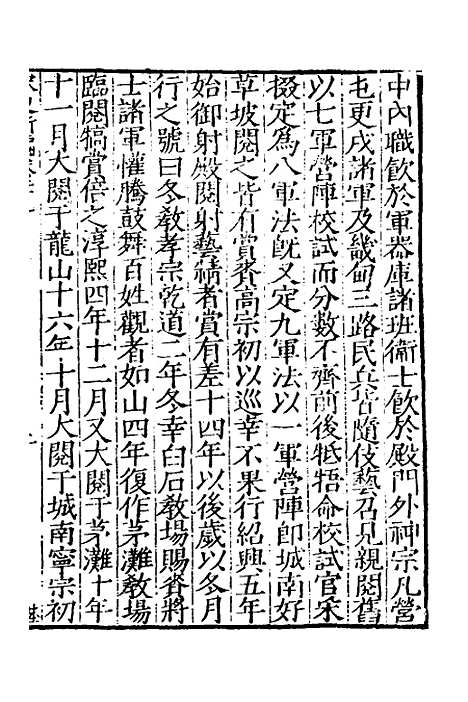 中內職飲於軍器庫諸班衞士飲於殿門外神宗凡營
屯更戍諸軍及畿甸三路民兵皆隨伎藝召見親閱舊
以七軍營陣校試而分數不齊前後牴牾命校試官采
掇定爲八軍法旣又定九軍法以一軍營陣即城南好
草坡閱之皆有賞賚高宗初以巡幸不果行紹興五年
始御射殿閱射藝精者賞有差十四年以後歲以冬月
行之號曰冬教孝宗乾道二年冬幸白石教場賜賚將
士諸軍懽騰鼓舞百姓觀者如山四年復作茅灘教場
臨閱犒賞倍之淳熙四年十二月又大閱于茅灘十年
十一月大閱于龍山十六年十月大閱于城南寧宗初